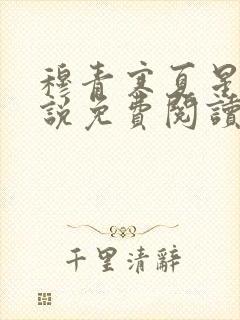 穆青寒夏星
說免費閱讀
千里清辭